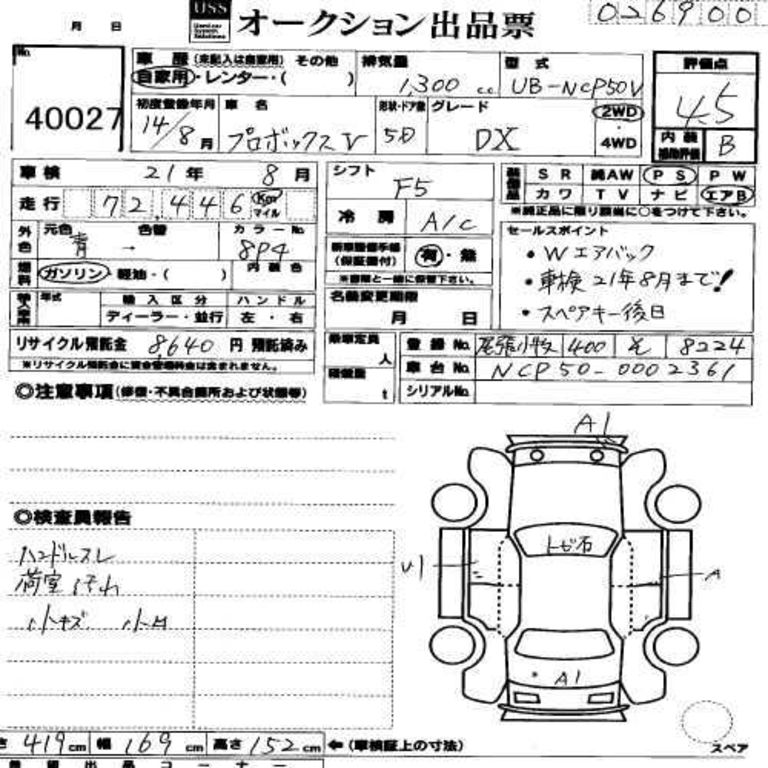 026900
USS
Used car
System
Solutions
オークション出品票
月 日
No.
40027
車歴 (未記入は自家用) その他
自家用・レンター・( )
排気量
1,300 cc
型式
UB-NCP50V
評価点
4.5
内装
補助評価
B
初度登録年月
14/8月
車名
プロボックスV
形状・ドア数
5D
グレード
DX
2WD
・
4WD
車検 21年 8月
走行 72,446 Km マイル
外色 元色 青 → 色替 カラーNo. 8P4
燃料 ガソリン・軽油・( ) 内装色
輸入車 年式 輸入区分 ハンドル
ディーラー・並行 左・右
リサイクル預託金 8,640 円 預託済み
※リサイクル預託金に資金管理料金は含まれません。
シフト F5
冷房 A/C
新車整備手帳
(保証書付)
有・無
※書類と一緒に保管下さい。
名義変更期限
月 日
乗車定員 人
積載量 t
装備品 SR 純AW PS PW
カワ TV ナビ エアB
※純正品に限り該当に○をつけて下さい。
セールスポイント
・Wエアバック
・車検21年8月まで!
・スペアキー後日
登録No. 尾張小牧 400 そ 8224
車台No. NCP50-0002361
シリアルNo.
◎注意事項(修復・不具合箇所および状態等)
◎検査員報告
ハンドルスレ
荷室汚れ
小キズ 小凹
A1
トビ石
U1
A
A1
スペア
さ 419cm 幅 169cm 高さ 152cm ←(車検証上の寸法)